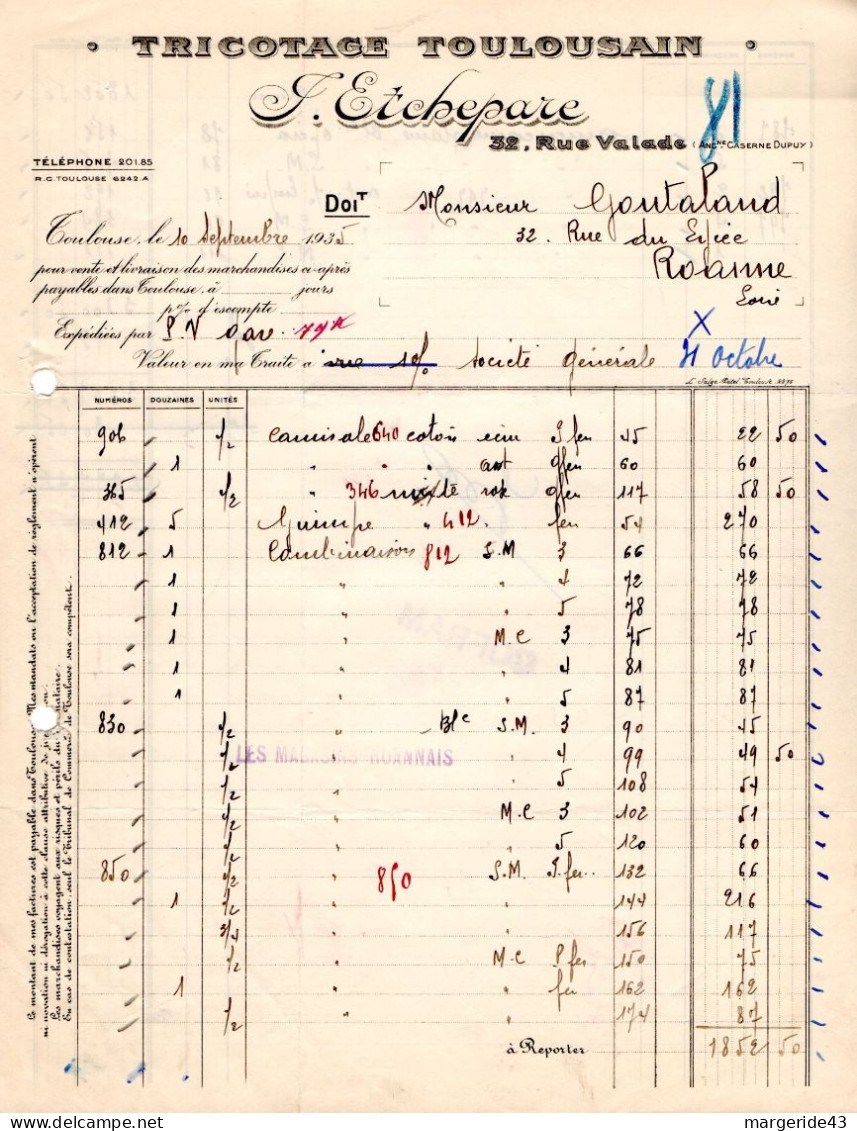 TRICOTAGE TOULOUSAIN
J. Etchepare
81
32, Rue Valade (ANCNE CASERNE DUPUY)
TÉLÉPHONE 201.85
R.C. TOULOUSE 6242.A
DOIT
Monsieur Goutaland
32. Rue du
Roanne
Loire
Toulouse, le 10 Septembre 1935
pour vente et livraison des marchandises ci-après
payables dans Toulouse, à jours
p% d'escompte
Expédiées par P.V gare. 79k
X
Valeur en ma Traite à Société Générale 31 Octobre
NUMÉROS DOUZAINES UNITÉS
906 1/2 Camisole 640 coton 45 22 50
1 " " 60 60
345 1/2 " 346 mixte 117 58 50
412 5 Guimpe " 412. fen 54 270
812 1 Combinaison 812 S.M 3 66 66
1 " " 4 72 72
1 " " 5 78 78
1 " M.C 3 75 75
1 " " 4 81 81
1 " " 5 87 87
830 1/2 " Blc S.M. 3 90 45
1/2 " " 4 99 49 50
LES MAGASINS ROANNAIS
1/2 " " 5 108 54
1/2 " M.C 3 102 51
1/2 " " 5 120 60
850 1/2 " 850 S.M. 132 66
1 1/2 " " 144 216
3/4 " " 156 117
1/2 " M.C 150 75
1 " " 162 162
1/2 " " 174 87
à Reporter 1852 50
Le montant de mes factures est payable dans Toulouse. Mes mandats ou l'acceptation de règlement n'opèrent
ni novation ni dérogation à cette clause attributive de
Les marchandises voyagent aux risques et périls du
En cas de contestation seul le Tribunal de Commerce de Toulouse sera compétent.
margeride43